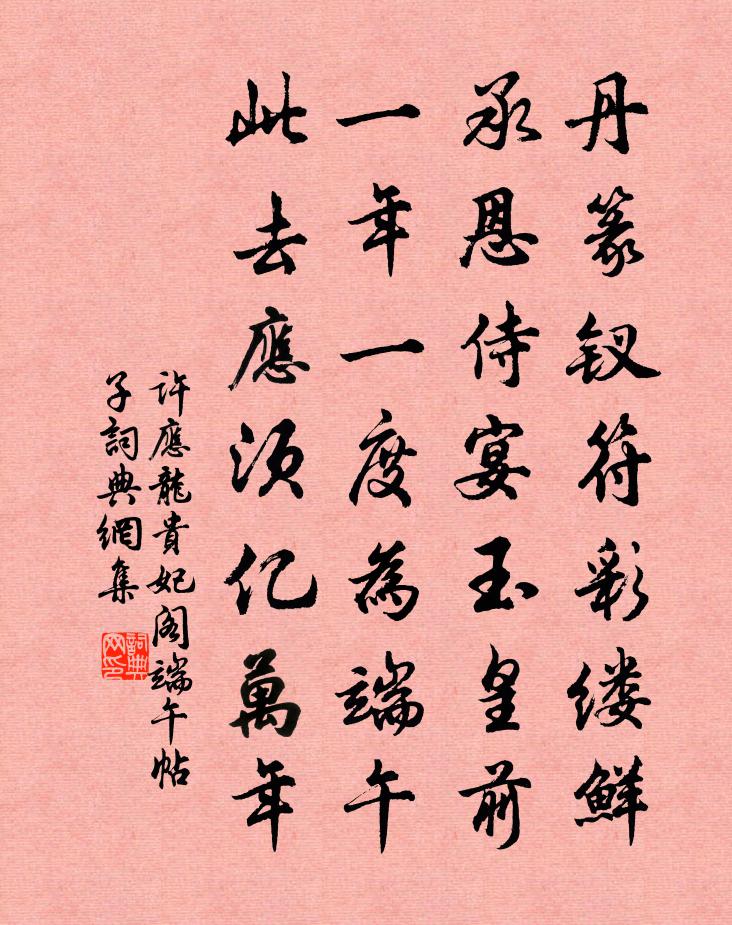 丹篆钗符彩缕鲜
承恩侍宴玉皇前
一年一度為端午
此去應須亿萬年
許應龍貴妃阁端午帖
子詞典網集
詞典
网印